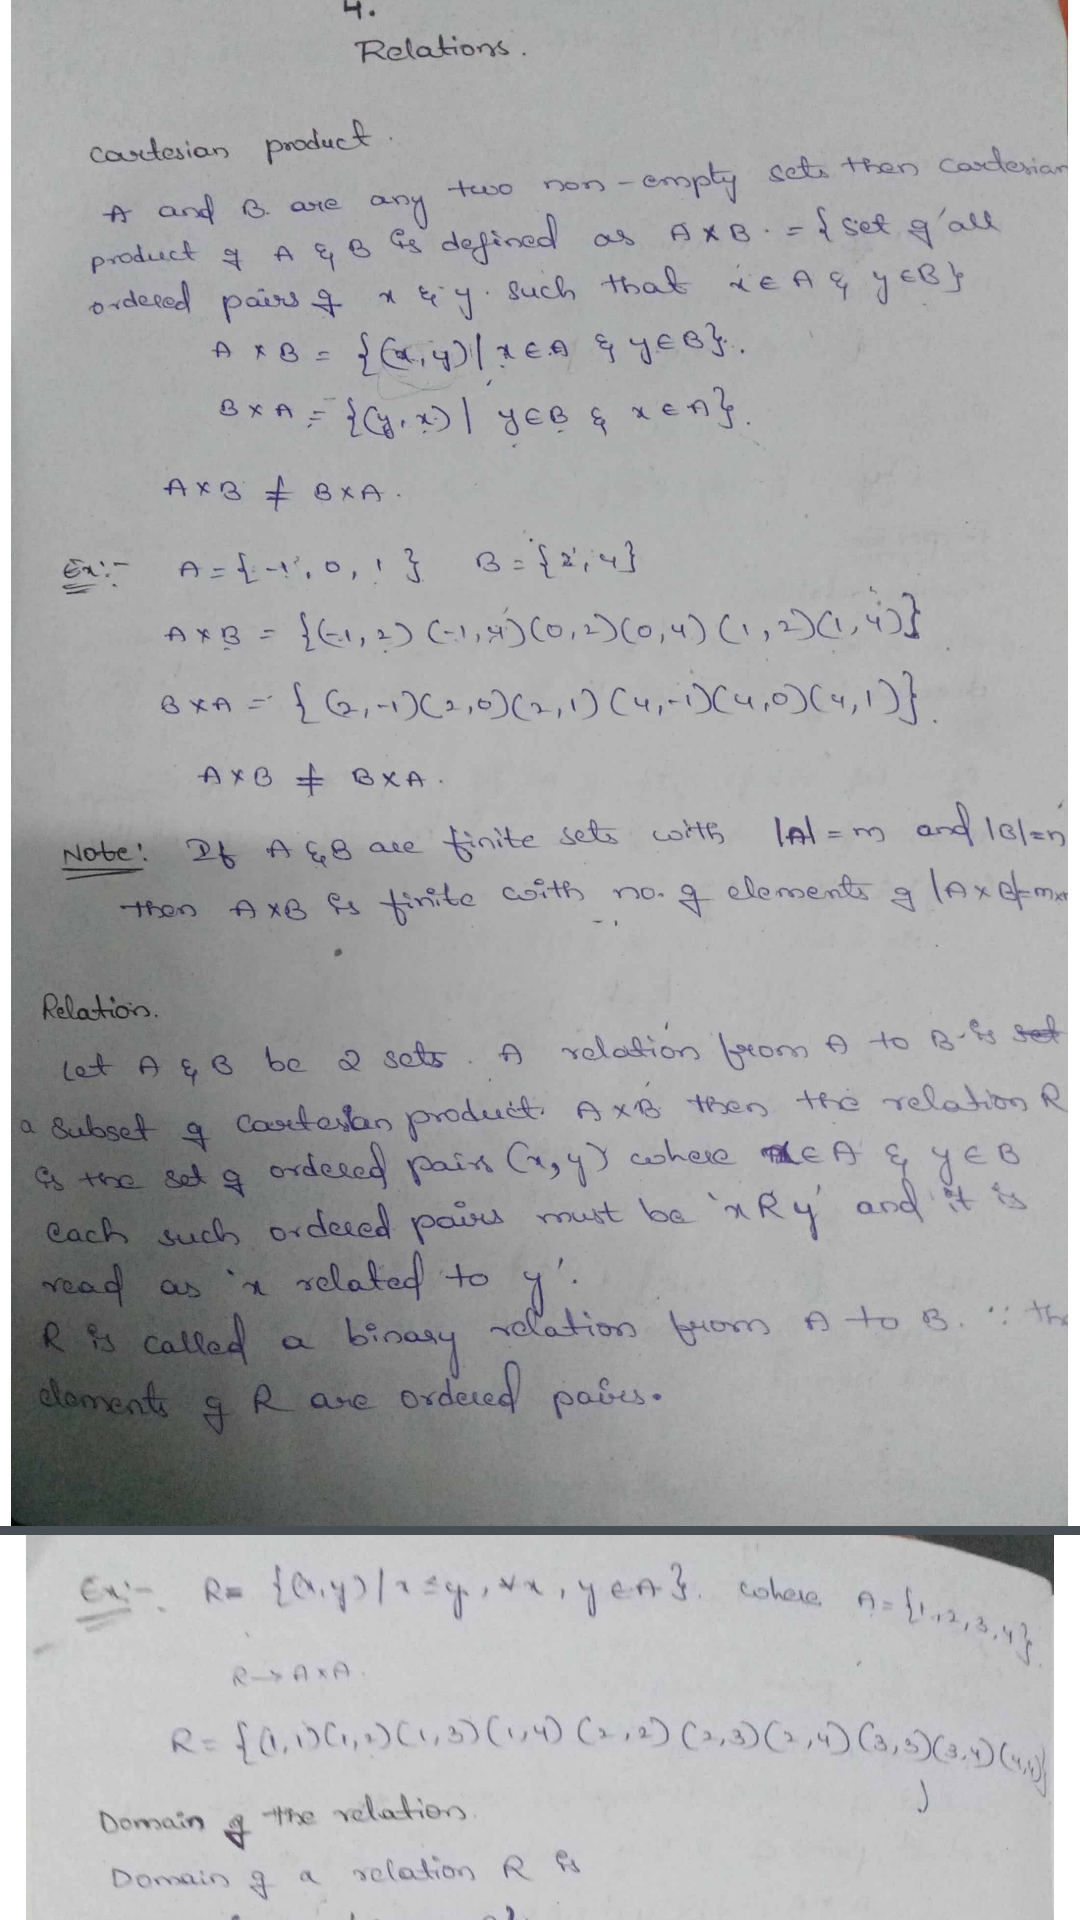 4.
Relations.
Cartesian product.
A and B are any two non-empty sets then cartesian
product of A & B is defined as A×B. = {set of all
ordered pairs of x & y. such that x∈A & y∈B}
A×B = {(x,y)| x∈A & y∈B}.
B×A = {(y,x)| y∈B & x∈A}.
A×B ≠ B×A.
Ex:- A={-1, 0, 1} B={2,4}
A×B = {(-1,2)(-1,4)(0,2)(0,4)(1,2)(1,4)}
B×A = {(2,-1)(2,0)(2,1)(4,-1)(4,0)(4,1)}.
A×B ≠ B×A.
Note: If A & B are finite sets with |A|=m and |B|=n
then A×B is finite with no. of elements of |A×B|=m×n
Relation.
Let A & B be 2 sets. A relation from A to B is set
a subset of Cartesian product A×B then the relation R
is the set of ordered pairs (x,y) where x∈A & y∈B
each such ordered pairs must be 'xRy' and it is
read as 'x related to y'.
R is called a binary relation from A to B. ∵ the
elements of R are ordered pairs.
Ex:- R= {(x,y)/x≤y, ∀x, y∈A}. where A={1,2,3,4}.
R→A×A.
R= {(1,1)(1,2)(1,3)(1,4)(2,2)(2,3)(2,4)(3,3)(3,4)(4,4)}
Domain of the relation.
Domain of a relation R is